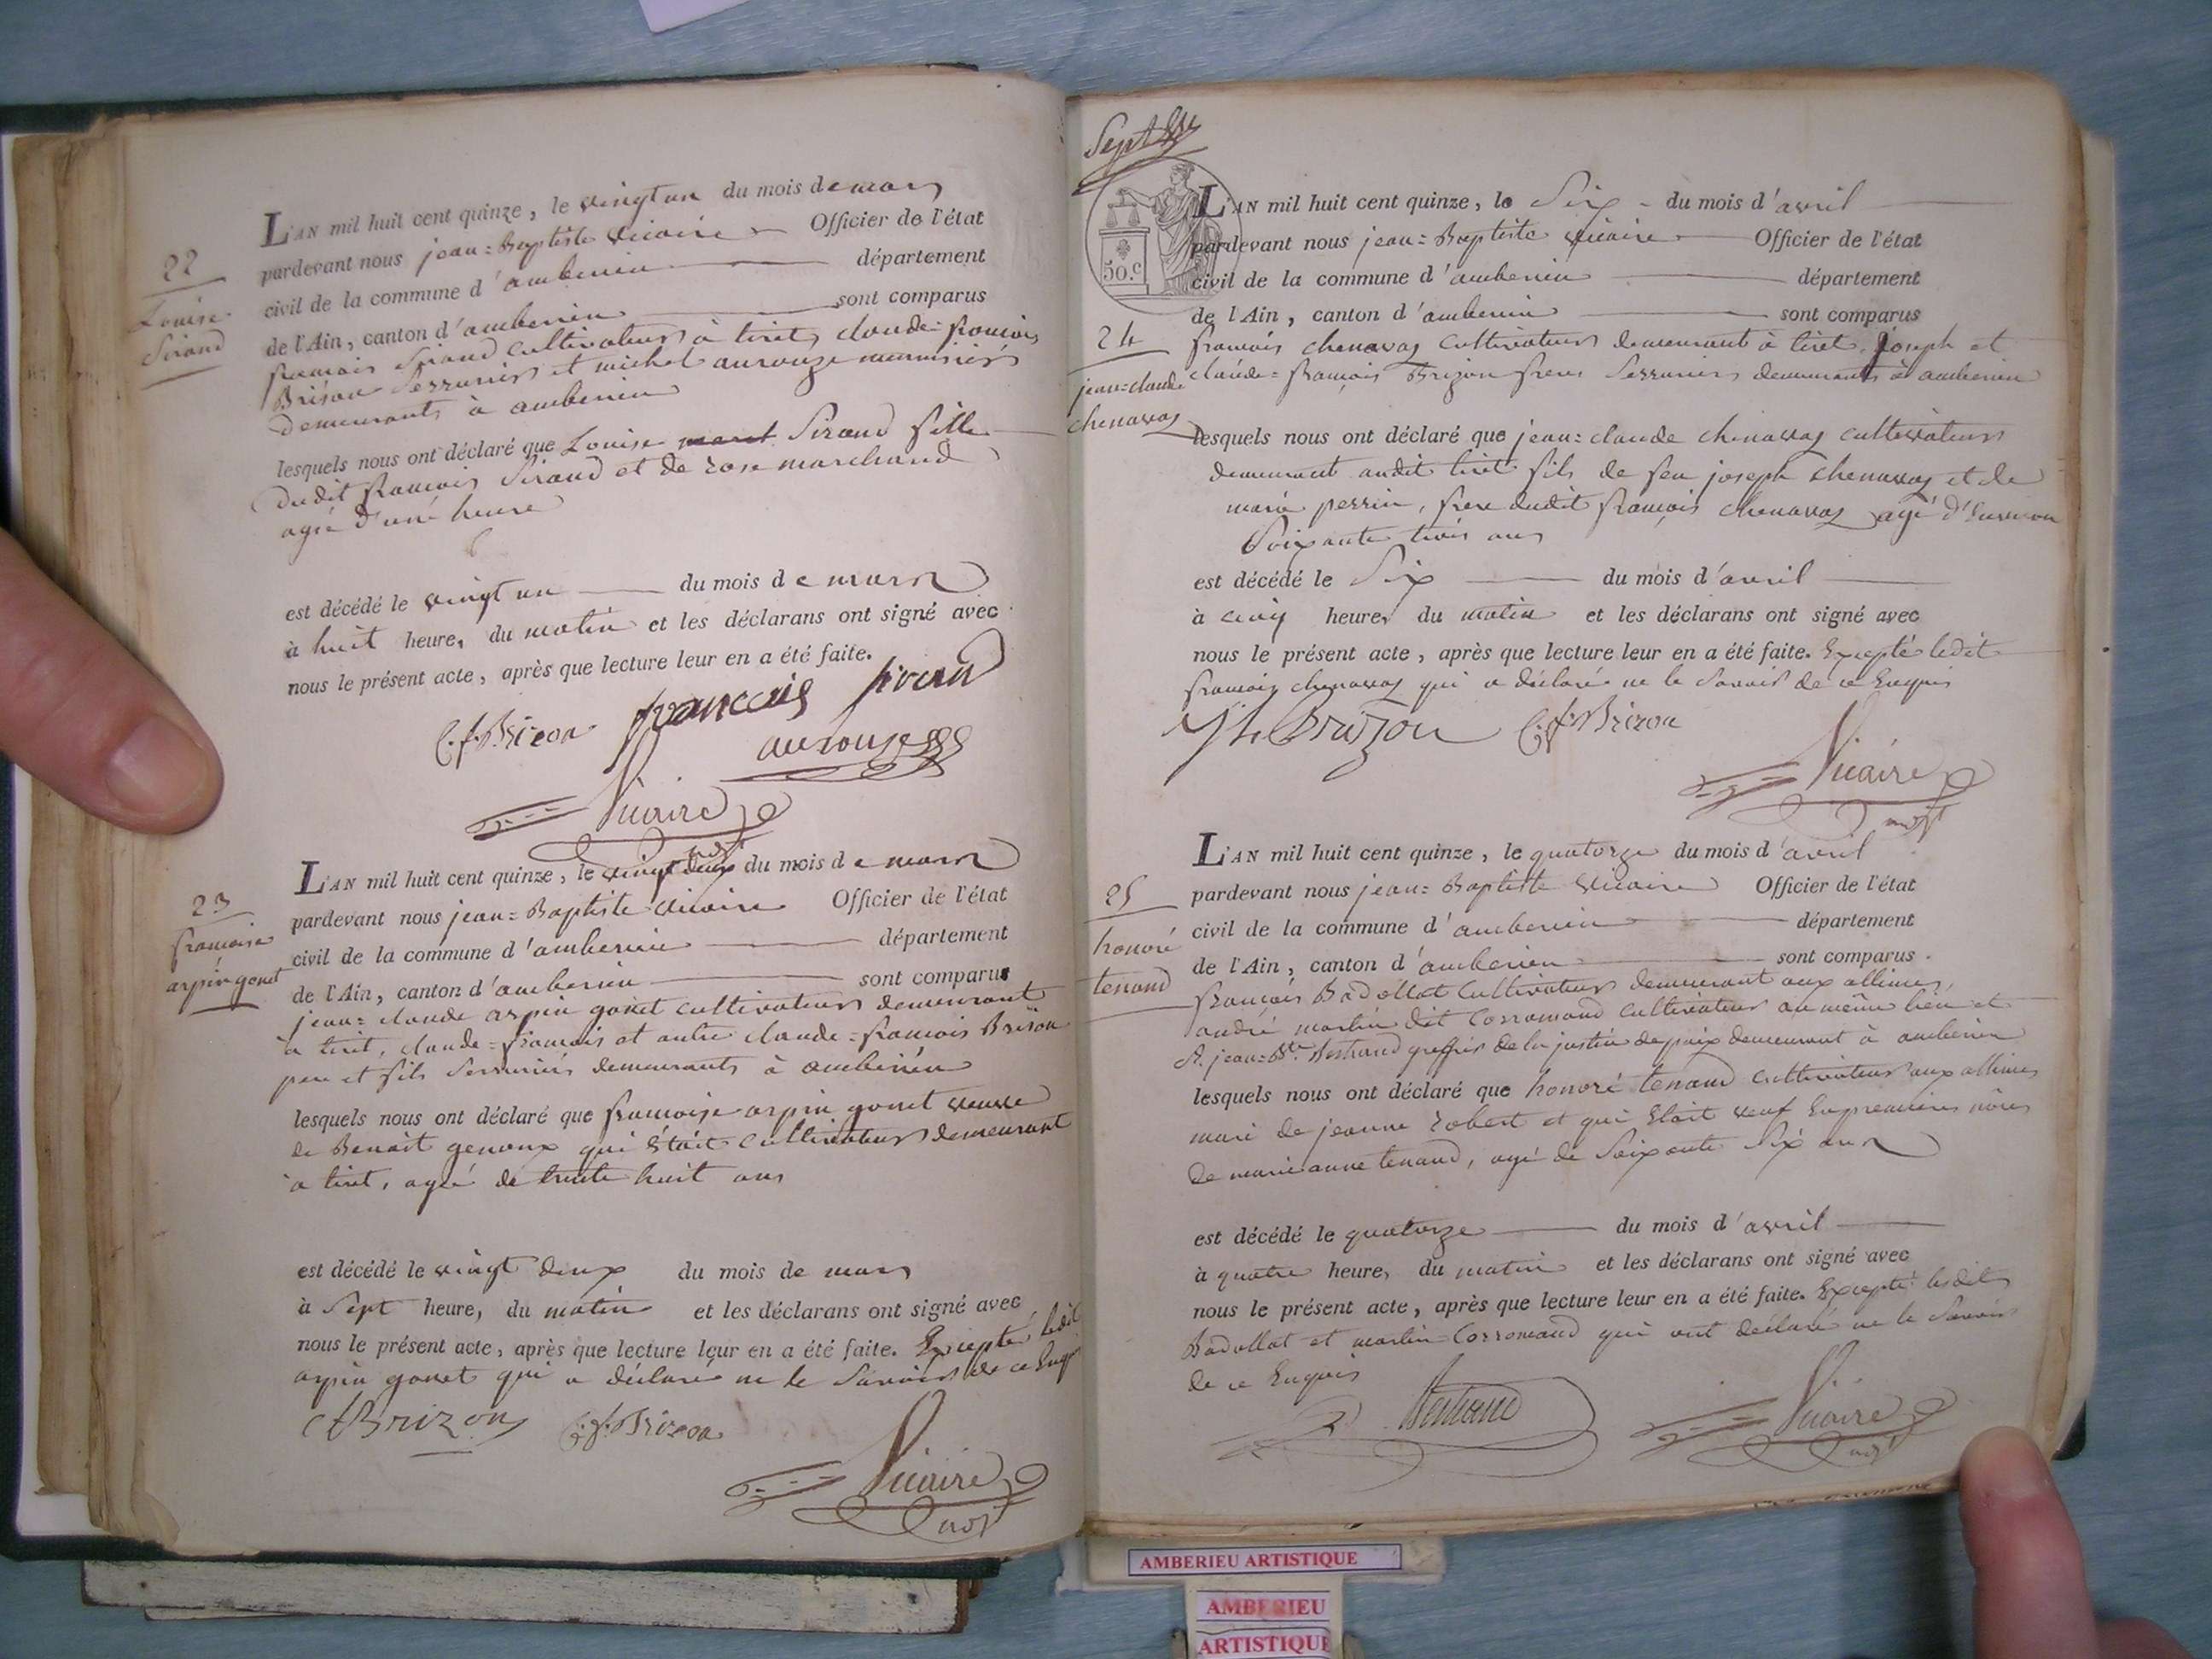 22
Louise
Sirand
L'AN mil huit cent quinze, le vingt un du mois de mars
pardevant nous jean=Baptiste Vicaire Officier de l'état
civil de la commune d'amberieu département
de l'Ain, canton d'amberieu sont comparus
francois Sirand cultivateur à tiret, claude=francois
Brison Serrurier et michel aurouze menuisier
demeurants à amberieu
lesquels nous ont déclaré que Louise Sirand fille
dudit francois Sirand et de rose marchand
agée d'une heure
est décédé le vingt un du mois de mars
à huit heures du matin et les déclarans ont signé avec
nous le présent acte, après que lecture leur en a été faite.
C.f. Brizon francois sirand
aurouze
Vicaire
23
francoise
arpin gonet
L'AN mil huit cent quinze, le vingt deux du mois de mars
pardevant nous jean=Baptiste Vicaire Officier de l'état
civil de la commune d'amberieu département
de l'Ain, canton d'amberieu sont comparus
jean=claude arpin gonet cultivateur demeurant
à tiret, claude=francois et autre claude=francois Brison
pere et fils Serruriers demeurants à amberieu
lesquels nous ont déclaré que francoise arpin gonet veuve
de Benoit genoux qui était cultivateur demeurant
a tiret, agée de trente huit ans
est décédé le vingt deux du mois de mars
à Sept heures du matin et les déclarans ont signé avec
nous le présent acte, après que lecture leur en a été faite. Excepté ledit
arpin gonet qui a déclaré ne le Savoir de ce Enquis
cf Brizon C.f. Brizon
Vicaire
50.c
24
jean=claude
chenavas
L'AN mil huit cent quinze, le Six du mois d'avril
pardevant nous jean=Baptiste Vicaire Officier de l'état
civil de la commune d'amberieu département
de l'Ain, canton d'amberieu sont comparus
francois chenavas cultivateur demeurant à tiret, joseph et
claude=francois Brizon freres Serruriers demeurants à amberieu
lesquels nous ont déclaré que jean=claude chenavas cultivateur
demeurant audit tiret fils de feu joseph chenavas et de
marie perrin, frere dudit francois chenavas agé d'Environ
Soixante trois ans
est décédé le Six du mois d'avril
à cinq heures du matin et les déclarans ont signé avec
nous le présent acte, après que lecture leur en a été faite. Excepté ledit
francois chenavas qui a déclaré ne le Savoir de ce Enquis
Jh Brizon C.f. Brizon
Vicaire
25
honoré
tenand
L'AN mil huit cent quinze, le quatorze du mois d'avril
pardevant nous jean=Baptiste Vicaire Officier de l'état
civil de la commune d'amberieu département
de l'Ain, canton d'amberieu sont comparus
francois Badollat Cultivateur demeurant aux allimes,
andré martin dit Corromand cultivateur au même lieu et
jean=Bte Bertrand greffier de la justice de paix demeurant à amberieu
lesquels nous ont déclaré que honoré tenand cultivateur aux allimes
mari de jeanne robert et qui Etait veuf En premieres nôces
de marie anne tenand, agé de Soixante Six ans
est décédé le quatorze du mois d'avril
à quatre heures du matin et les déclarans ont signé avec
nous le présent acte, après que lecture leur en a été faite. Excepté lesdits
Badollat et martin Corromand qui ont déclaré ne le Savoir
de ce Enquis
Bertrand Vicaire
AMBERIEU ARTISTIQUE
AMBERIEU
ARTISTIQUE